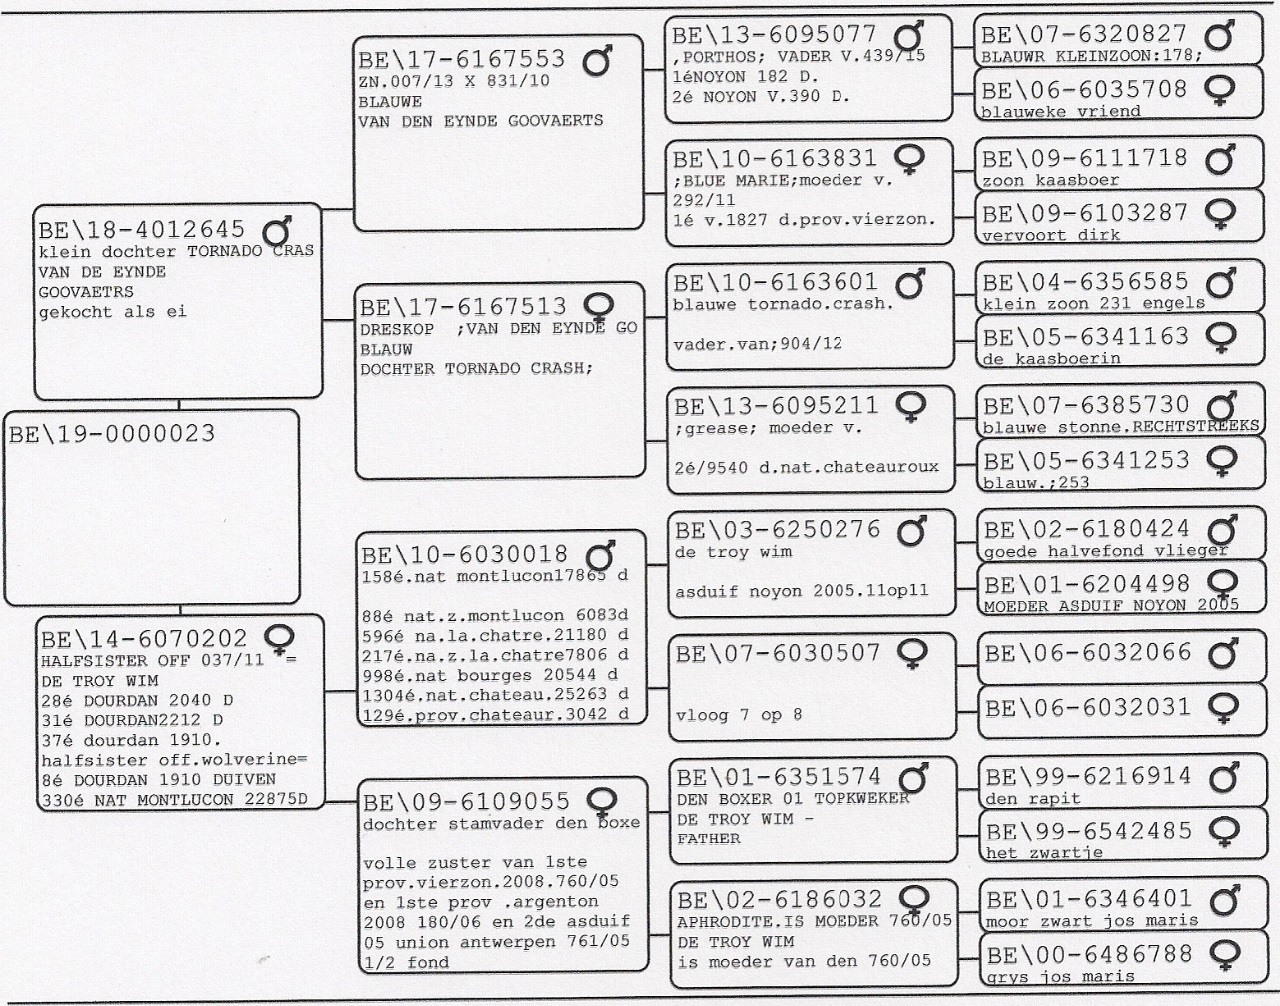 BE\18-4012645 ♂
klein dochter TORNADO CRAS
VAN DE EYNDE
GOOVAETRS
gekocht als ei
BE\19-0000023
BE\14-6070202 ♀
HALFSISTER OFF 037/11 =
DE TROY WIM
28é DOURDAN 2040 D
31é DOURDAN2212 D
37é dourdan 1910.
halfsister off.wolverine=
8é DOURDAN 1910 DUIVEN
330é NAT MONTLUCON 22875D
BE\17-6167553 ♂
ZN.007/13 X 831/10
BLAUWE
VAN DEN EYNDE GOOVAERTS
BE\17-6167513 ♀
DRESKOP ;VAN DEN EYNDE GO
BLAUW
DOCHTER TORNADO CRASH;
BE\10-6030018 ♂
158é.nat montlucon17865 d
88é nat.z.montlucon 6083d
596é na.la.chatre.21180 d
217é.na.z.la.chatre7806 d
998é.nat bourges 20544 d
1304é.nat.chateau.25263 d
129é.prov.chateaur.3042 d
BE\09-6109055 ♀
dochter stamvader den boxe
volle zuster van 1ste
prov.vierzon.2008.760/05
en 1ste prov .argenton
2008 180/06 en 2de asduif
05 union antwerpen 761/05
1/2 fond
BE\13-6095077 ♂
,PORTHOS; VADER V.439/15
1éNOYON 182 D.
2é NOYON V.390 D.
BE\10-6163831 ♀
;BLUE MARIE;moeder v.
292/11
1é v.1827 d.prov.vierzon.
BE\10-6163601 ♂
blauwe tornado.crash.
vader.van;904/12
BE\13-6095211 ♀
;grease; moeder v.
2é/9540 d.nat.chateauroux
BE\03-6250276 ♂
de troy wim
asduif noyon 2005.11op11
BE\07-6030507 ♀
vloog 7 op 8
BE\01-6351574 ♂
DEN BOXER 01 TOPKWEKER
DE TROY WIM -
FATHER
BE\02-6186032 ♀
APHRODITE.IS MOEDER 760/05
DE TROY WIM
is moeder van den 760/05
BE\07-6320827 ♂
BLAUWR KLEINZOON:178;
BE\06-6035708 ♀
blauweke vriend
BE\09-6111718 ♂
zoon kaasboer
BE\09-6103287 ♀
vervoort dirk
BE\04-6356585 ♂
klein zoon 231 engels
BE\05-6341163 ♀
de kaasboerin
BE\07-6385730 ♂
blauwe stonne.RECHTSTREEKS
BE\05-6341253 ♀
blauw.;253
BE\02-6180424 ♂
goede halvefond vlieger
BE\01-6204498 ♀
MOEDER ASDUIF NOYON 2005
BE\06-6032066 ♂
BE\06-6032031 ♀
BE\99-6216914 ♂
den rapit
BE\99-6542485 ♀
het zwartje
BE\01-6346401 ♂
moor zwart jos maris
BE\00-6486788 ♀
grys jos maris